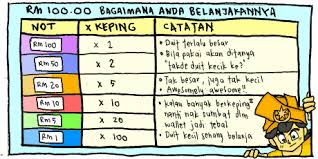 RM 100.00 BAGAIMANA ANDA BELANJAKANNYA
NOT X KEPING CATATAN
RM 100 X 1 • Duit terlalu besar
• Bila pakai akan ditanya
"takde duit kecik ke?"
RM 50 X 2
RM 20 X 5 • Tak besar, juga tak kecil
• Awesomely awesome!!
RM 10 X 10 • kalau banyak berkeping²
nanti nak sumbat dlm
wallet jadi tebal
• Duit kecil senang belanja
RM 5 X 20
RM 1 X 100